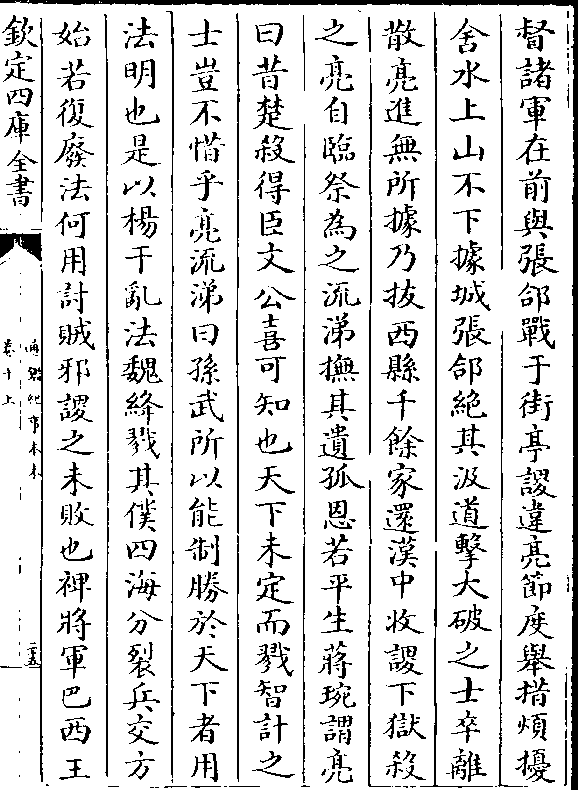 督諸軍在前與張郃戰于街亭謖違亮節度舉措煩擾
舍水上山不下據城張郃絶其汲道擊大破之士卒離
散亮進無所據乃拔西縣千餘家還漢中收謖下獄殺
之亮自臨祭為之流涕撫其遺孤恩若平生蔣琬謂亮
曰昔楚殺得臣文公喜可知也天下未定而戮智計之
士豈不惜乎亮流涕曰孫武所以能制勝於天下者用
法明也是以楊干亂法魏絳戮其僕四海分裂兵交方
始若復廢法何用討賊邪謖之未敗也裨將軍巴西王
欽定四庫全書
通鑑紀事本末
卷十上
二五